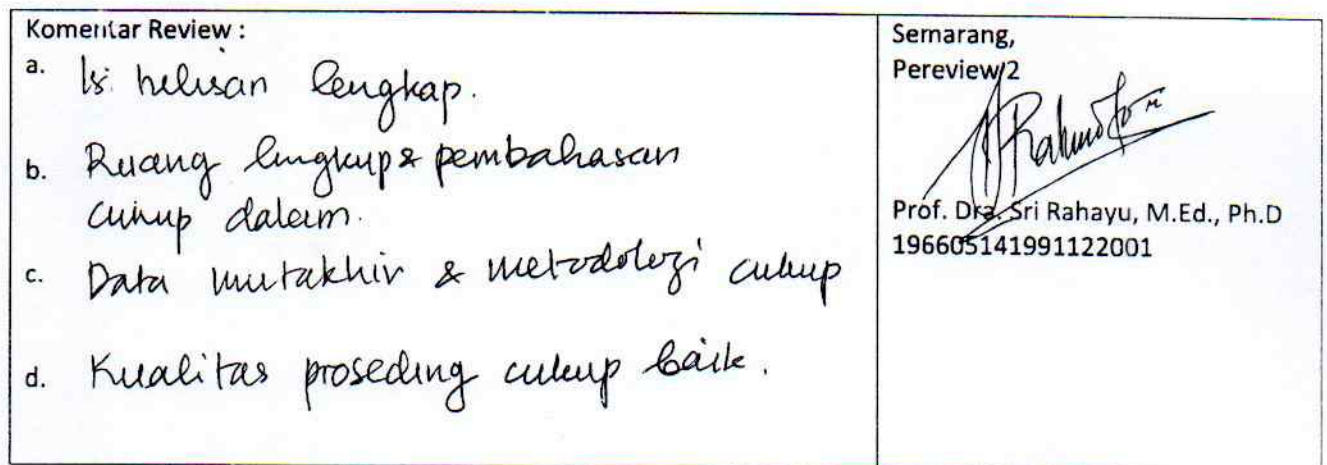 Komentar Review :
a. Isi tulisan lengkap.
b. Ruang lingkup & pembahasan
cukup dalam.
c. Data mutakhir & metodologi cukup
d. Kualitas proseding cukup baik.
Semarang,
Pereview 2
Prof. Dra. Sri Rahayu, M.Ed., Ph.D
196605141991122001